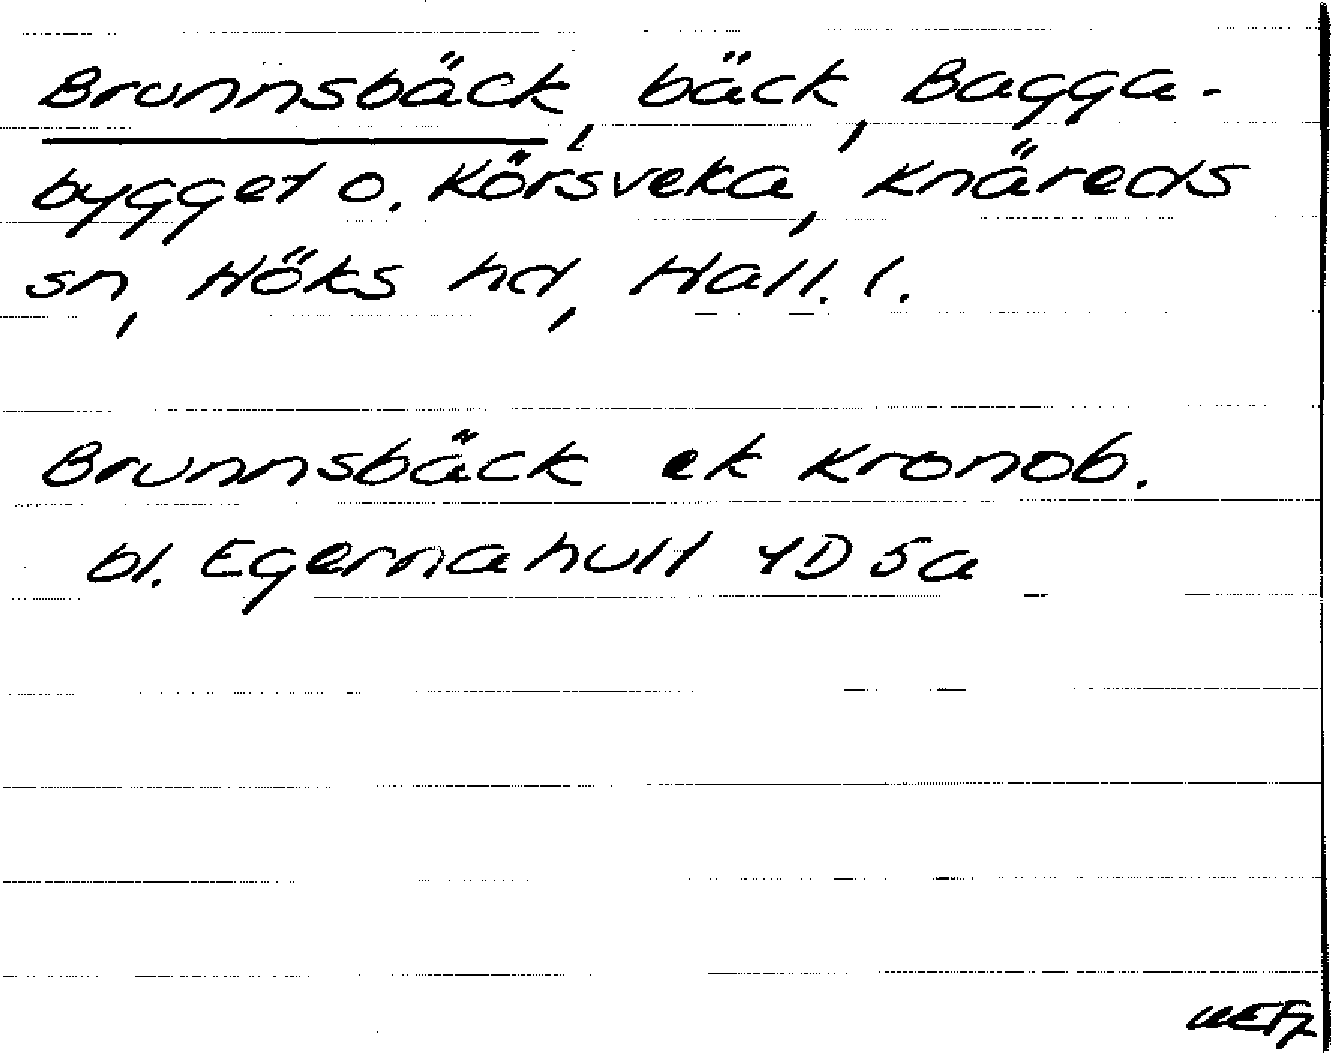 Brunnsbäck, bäck, Bagga-
bygget o. Körsveka, Knäreds
sn, Höks hd, Hall. l.
Brunnsbäck ek Kronob.
bl. Egernahult 4D 5a